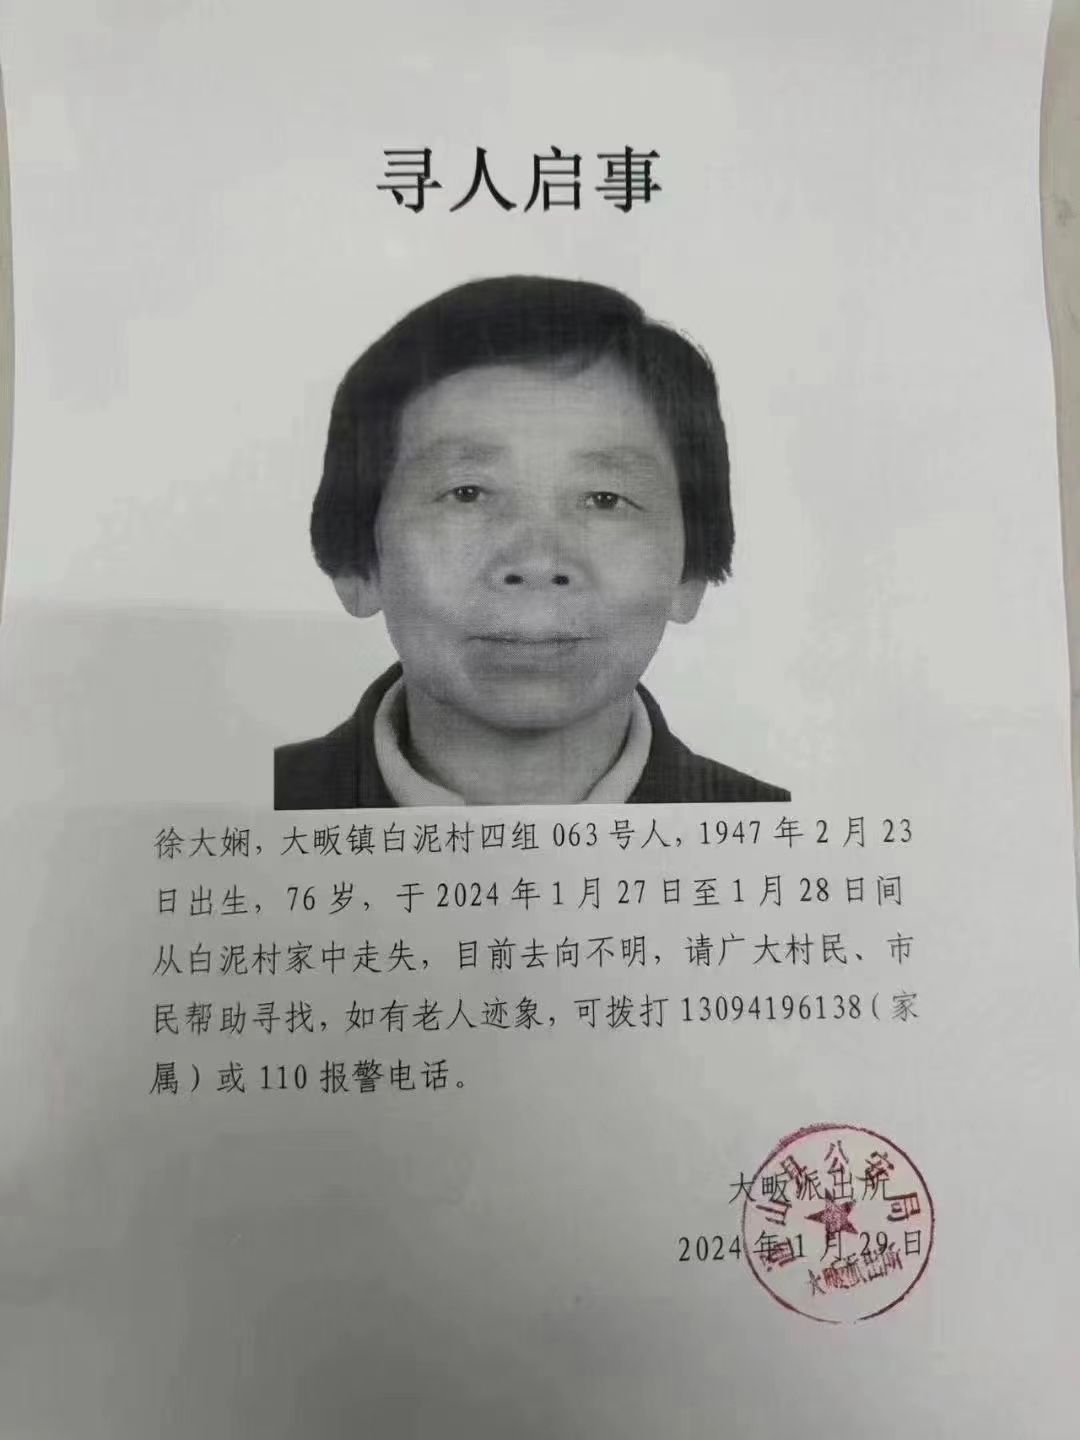 寻人启事
徐大娴，大畈镇白泥村四组 063 号人，1947 年 2 月 23
日出生，76 岁，于 2024 年 1 月 27 日至 1 月 28 日间
从白泥村家中走失，目前去向不明，请广大村民、市
民帮助寻找，如有老人迹象，可拨打 13094196138（家
属）或 110 报警电话。
大畈派出所
2024 年 1 月 29 日
山县公安局
大畈派出所